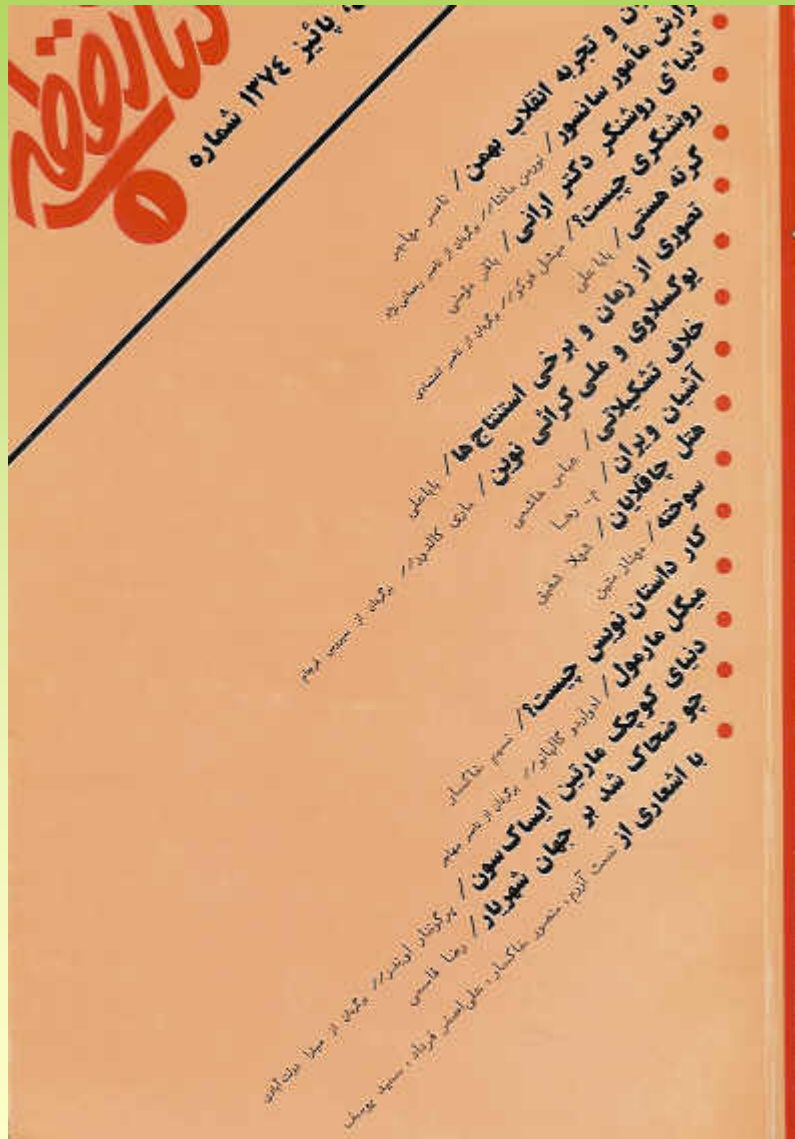 پائیز ۱۳۷٤ شماره
ن و تجربه انقلاب بهمن / ناصر مهاجر
زارش مأمور سانسور / نورمن مانئا // برگردان از ناصر رحمانی نژاد
"دنیا"ی روشنگر دکتر ارانی / باقر مؤمنی
روشنگری چیست؟ / میشل فوکو // برگردان از ناصر اعتمادی
کرته هستی / باباعلی
تصوری از زمان و برخی استنتاج ها / باباعلی
یوگسلاوی و ملی گرائی نوین / ماری کالدور // برگردان از سیروس
خلاف تشکیلاتی / عباس هاشمی
آشیان ویران / م. رضا
هتل چاقلایان / شهلا شفیق
سوخته / مهناز متین
کار داستان نویس چیست؟ / نسیم خاکسار
میگل مارمول / ادواردو گالیانو // برگردان از ناصر مهاجر
دنیای کوچک مارتین ایساک سون / برگردان از میترا دولت آبادی
چو ضحاک شد بر جهان شهریار / رضا قاسمی
با اشعاری از نعمت آزرم، منصور خاکسار، علی اصغر فرداد، سعید یوسف